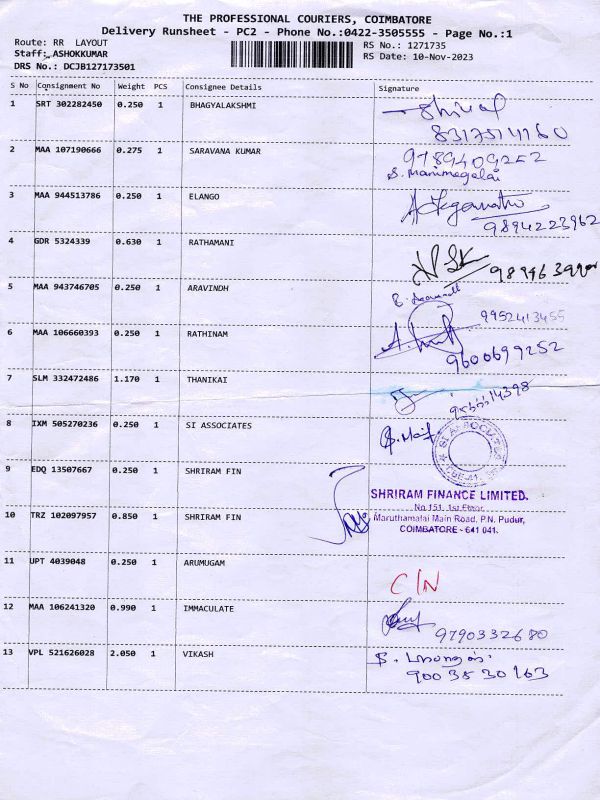 THE PROFESSIONAL COURIERS, COIMBATORE
Delivery Runsheet - PC2 - Phone No.:0422-3505555 - Page No.:1
Route: RR LAYOUT RS No.: 1271735
Staff: ASHOKKUMAR RS Date: 10-Nov-2023
DRS No.: DCJB127173501
S No Consignment No Weight PCS Consignee Details Signature
1 SRT 302282450 0.250 1 BHAGYALAKSHMI
2 MAA 107190666 0.275 1 SARAVANA KUMAR 9789409252
S. Manimegalai
3 MAA 944513786 0.250 1 ELANGO
9894223962
4 GDR 5324339 0.630 1 RATHAMANI
5 MAA 943746705 0.250 1 ARAVINDH
9952413455
6 MAA 106660393 0.250 1 RATHINAM
9600699252
7 SLM 332472486 1.170 1 THANIKAI
8 IXM 505270236 0.250 1 SI ASSOCIATES
SI ASSOCIATES
9 EDQ 13507667 0.250 1 SHRIRAM FIN
SHRIRAM FINANCE LIMITED.
No 151, 1st Floor,
10 TRZ 102097957 0.850 1 SHRIRAM FIN Maruthamalai Main Road, P.N. Pudur,
COIMBATORE - 641 041.
11 UPT 4039048 0.250 1 ARUMUGAM
C/N
12 MAA 106241320 0.990 1 IMMACULATE
9790332680
13 VPL 521626028 2.050 1 VIKASH
9003530163